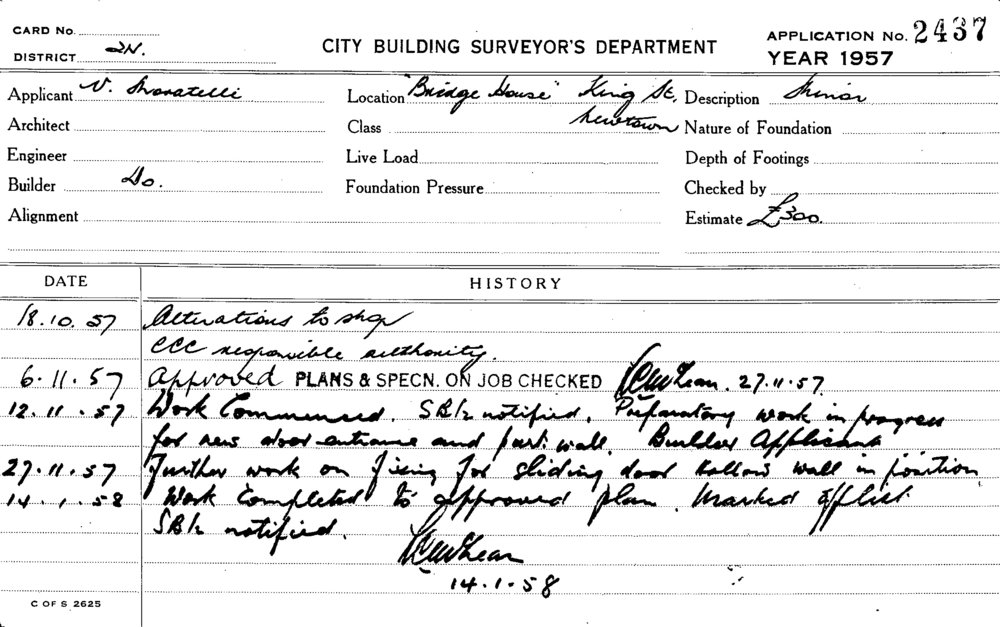 CARD No.
DISTRICT 2N.
CITY BUILDING SURVEYOR'S DEPARTMENT
APPLICATION No. 2437
YEAR 1957
Applicant V.
Location "Bridge House" King St. Newtown
Description Minor
Architect
Class
Nature of Foundation
Engineer
Live Load
Depth of Footings
Builder Do.
Foundation Pressure
Checked by
Alignment
Estimate £300.
DATE HISTORY
18.10.57 Alterations to shop
CCC responsible authority.
6.11.57 Approved PLANS & SPECN. ON JOB CHECKED 27.11.57
12.11.57 Work Commenced. notified. Preparatory work in progress
for new door entrance and part. wall. Builder Applicant
27.11.57 Further work on fixing for sliding door hollow wall in position
14.1.58 Work Completed to approved plan. Marked off list.
notified.
14.1.58
C OF S 2625